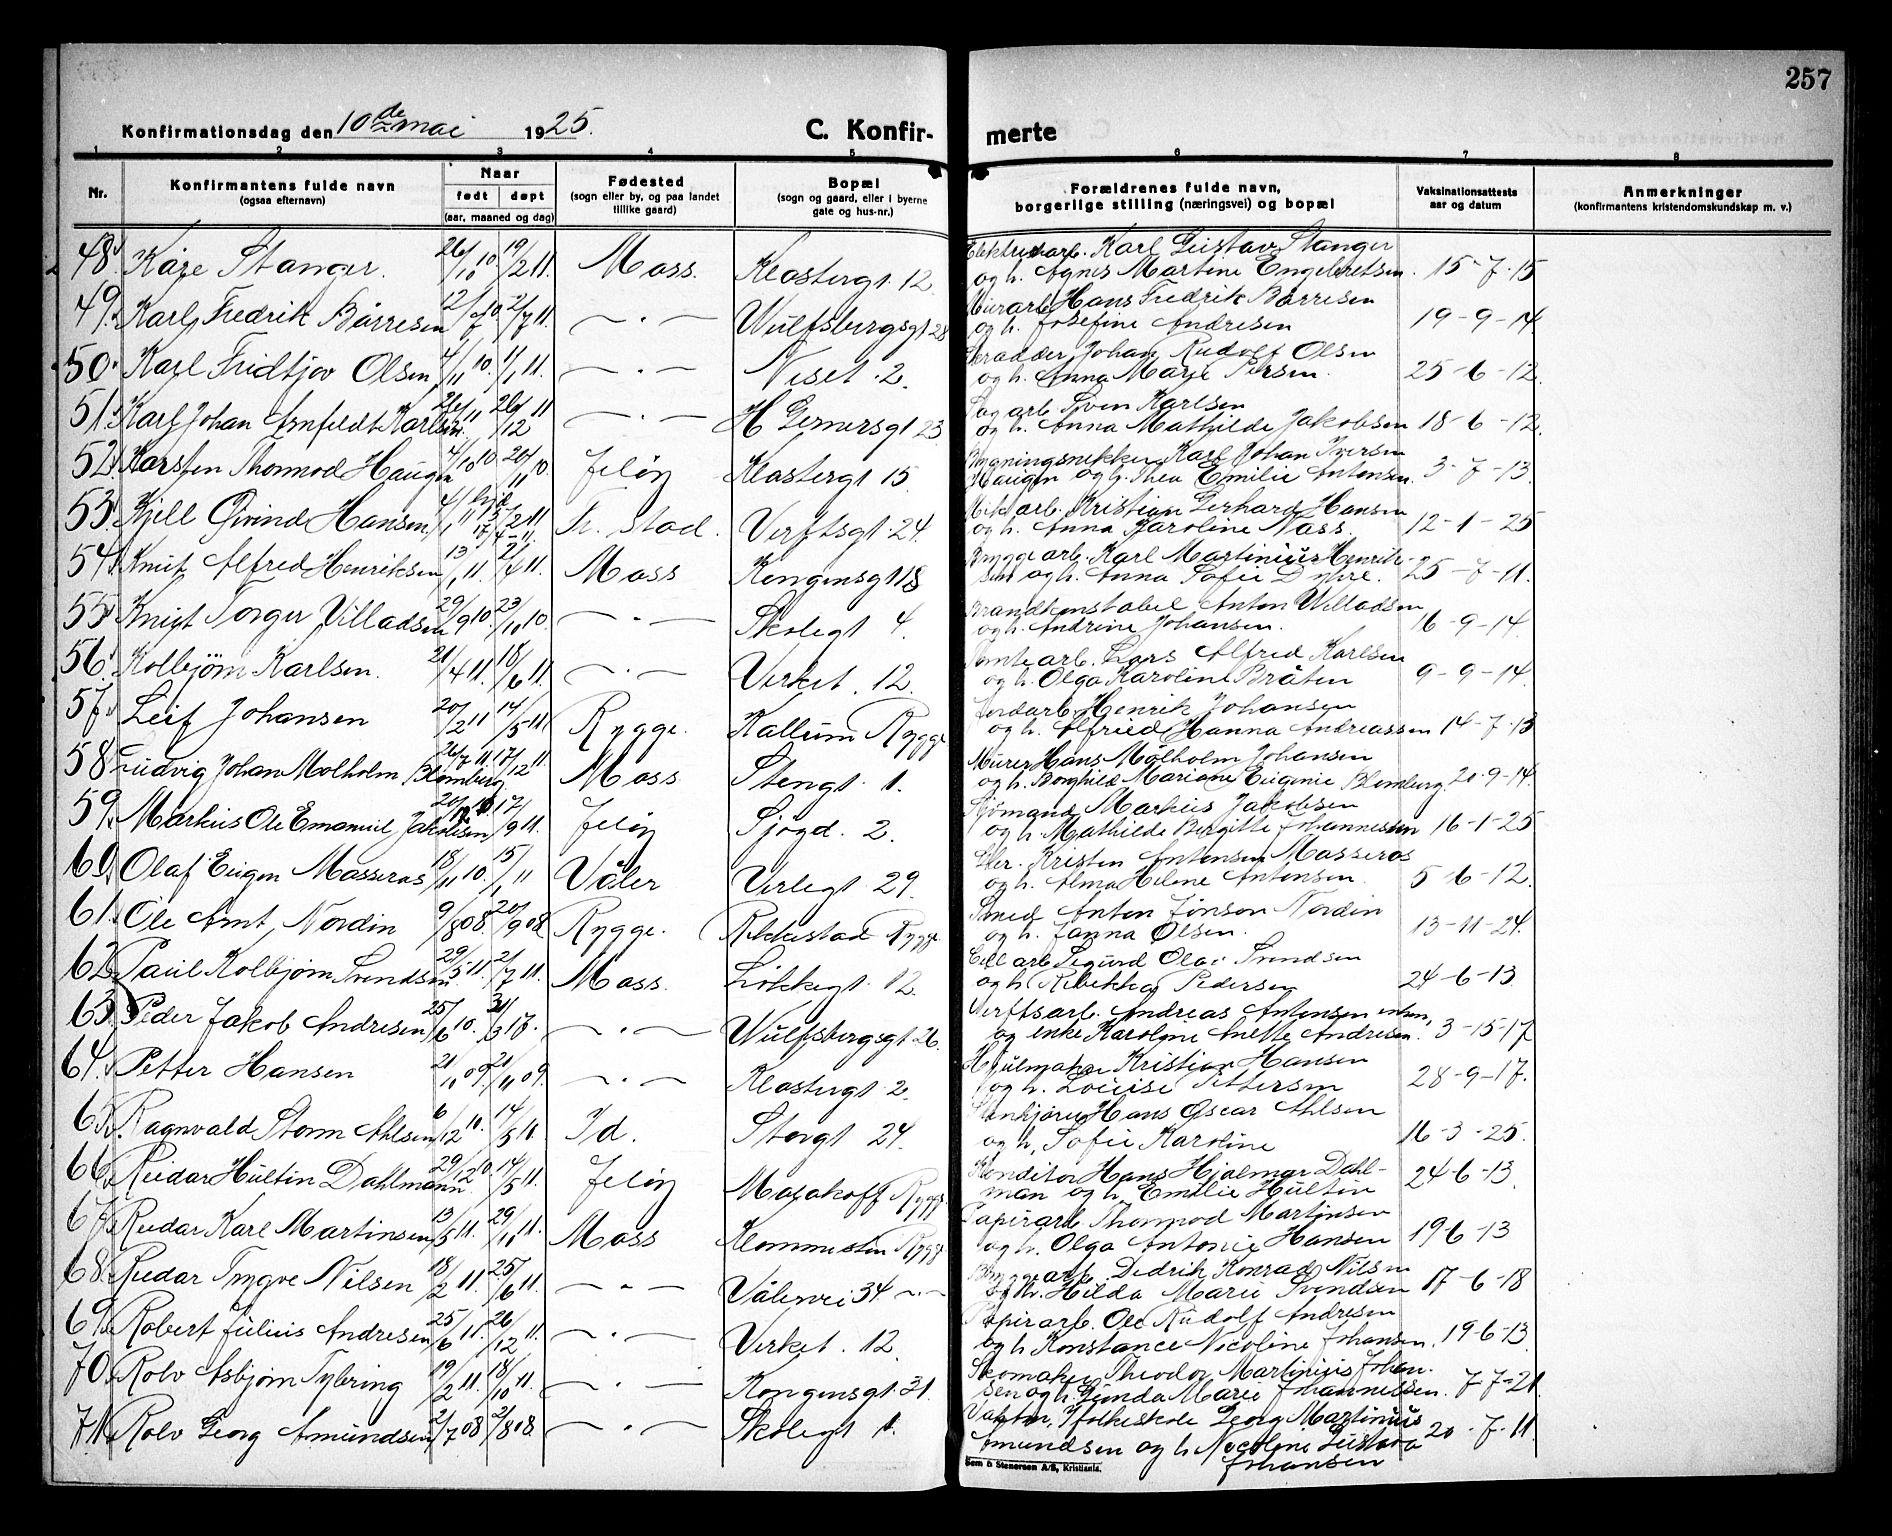 257
Konfirmationsdag den 10de mai 1925.
C. Konfirmerte
1 2 3 4 5 6 7 8
Nr.
Konfirmantens fulde navn
(ogsaa efternavn)
Naar
født døpt
(aar, maaned og dag)
Fødested
(sogn eller by, og paa landet
tillike gaard)
Bopæl
(sogn og gaard, eller i byerne
gate og hus-nr.)
Forældrenes fulde navn,
borgerlige stilling (næringsvei) og bopæl
Vaksinationsattests
aar og datum
Anmerkninger
(konfirmantens kristendomskundskap m. v.)
48. Kåre Stanger. 26/10 10. 19/2 11. Moss. Klostergt. 12. Karl Gustav Stanger
og h. Agnes Martine Engebretsen. 15-7-15
49. Karl Fredrik Børresen 12/7 10. 2/7 11. —·— Wulfsbergsgt 28 Hans Fredrik Børresen
og h. Josefine Andresen 19-9-14
50. Karl Fridtjov Olsen 4/11 10. 1/1 11. —·— Neset 2. Skrædder Johan Rudolf Olsen
og h. Anna Marie Persen. 25-6-12.
51. Karl Johan Arnfeldt Karlsen 26/11 26/12 11 —·— H Gernersgt 23 Sagarb. Sven Karlsen
og h. Anna Mathilde Jakobsen 18-6-12.
52. Karsten Thormod Haugen 4/10 10. 20/11 10. Jeløy Klostergt 15. Bygningsnekker Karl Johan Iversen
Haugen og h. Thea Emilie Antonsen. 3-7-13.
53. Kjell Øivind Hansen 4/1 11 5/2 11. Fr. stad. Verftsgt. 24. Kristian Gerhard Hansen
og h. Anna Karoline Næss. 12-1-25
54. Knut Alfred Henriksen 13/1 11. 2/4 11. Moss Kongensgt 18 Bryggearb. Karl Martinius Henriksen
og h. Anna Sofie Dybre. 25-7-11.
55. Knut Torger Villadsen 29/9 10. 23/10 10. —·— Skolegt 4. Brandkonstabel Anton Willadsen
og h. Andrine Johansen. 16-9-14.
56. Kolbjørn Karlsen. 21/4 11. 18/6 11. —·— Verket. 12. Tomtearb. Lars Alfred Karlsen
og h. Olga Karoline Bråten 9-9-14.
57. Leif Johansen 20/2 11 14/5 11 Rygge. Kallum Rygge Jordarb. Henrik Johansen
og h. Alfried Hanna Andreassen 14-7-13
58. Ludvig Johan Molholm Blomberg 26/7 11. 17/12 11 Moss Stengt. 1. Murer Hans Mølholm Johansen
og h. Borghild Mariane Eugenie Blomberg. 20-9-14.
59. Markus Ole Emanuel Jakobsen 20/12 10 17/9 11. Jeløy Sjøgd. 2. Sjømand Markus Jakobsen
og h. Mathilde Bergitte Johannessen 16-1-25
60. Olaf Eugen Masserøs 18/11 10. 15/1 11 Våler Verlegt 29. Kristen Antonsen Masserøs
og h. Alma Helene Antonsen. 5-6-12.
61. Ole Arnt Nordin 9/8 08. 20/9 08. Rygge. Rekkestad Rygge Smed Anton Jonson Nordin
og h. Janna Olsen. 13-11-24.
62. Paul Kolbjørn Svendsen 29/5 11. 2/7 11. Moss. Løkkegt. 12. Sigurd Olai Svendsen
og h. Rebekka Pedersen 24-6-13.
63. Peder Jakob Andresen 25/6 10. 31/3 17. —·— Wulfsbergsgt 26. Verftsarb. Andreas Antonsen
og enke Karoline Anette Andresen. 3-15-17
64. Petter Hansen 21/10 09. 21/11 09. —·— Klostergt. 2. Hjulmaker Kristian Hansen
og h. Lovise Pettersen 28-9-17.
65. Ragnvald Storm Ahlsen 6/12 10. 14/5 11. Id. Storgt 24. Stenhugger Hans Oscar Ahlsen
og h. Sofie Karoline 16-3-25.
66. Reidar Hultin Dahlmann 29/12 10. 14/5 11. Jeløy Malakoff Rygge Konditor Hans Hjalmar Dahlman
og h. Emilie Hultin 24-6-13.
67. Reidar Karl Martinsen 13/5 11. 29/10 11. Moss Rygge Papirarb. Thormod Martinsen
og h. Olga Antonie Hansen 19-6-13
68. Reidar Trygve Nilsen 18/2 11. 25/6 11. —·— Vålervei 34 —·— Bryggearb. Dedrik Konrad Nilsen
og h. Hilda Marie Svendsen 17-6-18
69. Robert Julius Andresen 25/6 11. 26/12 11. —·— Verket. 12. Papirarb. Ole Rudolf Andresen
og h. Konstance Nicoline Johansen. 19-6-13.
70. Rolv Asbjørn Tybring 19/2 11. 18/10 11. —·— Kongensgt. 31. Skomaker Theodor Martinius Johansen
og h. Gunda Marie Johannessen. 7-7-21.
71. Rolv Georg Amundsen 2/7 08 2/8 08. —·— Skolegt 1. Vaktm. v/folkeskole Georg Martinius
Amundsen og h. Nicoline Gustava
Johansen 20-7-11.
Sem & Stenersen A/S, Kristiania.